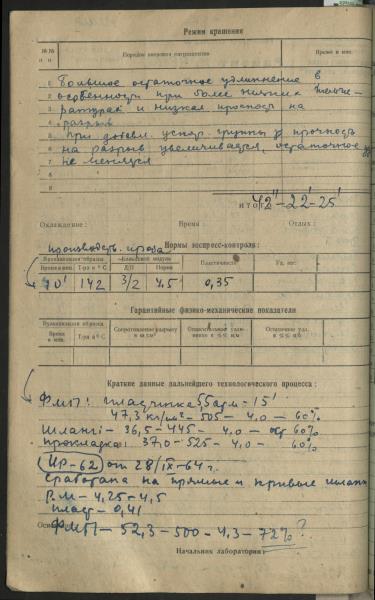 Режим крашения
№№ п п
Порядок введения ингредиентов
Время в мин.
1 Большое остаточное удлинение в
2 особенности при более низких темпе-
3 ратурах и низкая
4 разрыв
5 При добавл. ускор. группы
6 на разрыв увеличивается, остаточное
7 не меняется
8
9
ИТОГО 42'' – 22' – 25'
Охлаждение: Время: Отдых:
Нормы экспресс-контроля:
Вулканизация образца
Время в мин. Т-ра в °C
Кольцевой модуль
Д/П Норма
Пластичность
Уд. вес.
142 3/2 4.5 0,35
Гарантийные физико-механические показатели
Вулканизация образца
Время в мин. Т-ра в °C
Сопротивление разрыву
Остаточное удл.
Краткие данные дальнейшего технологического процесса:
ФМП: пластинка 5,5 атм – 15'
47,3 кг/см² – 505 – 4,0 – 60%
Шланги – 36,5 – 445 – 4.0 – 60%
прокладка: 37,0 – 525 – 4,0 – 60%
ИР–62 от 28/IX–64 г.
Сработана на прямые и кривые
Р.М – 4,25 – 4,5
пласт – 0,41
ФМП – 52,3 – 500 – 4,3 – 72% ?
Начальник лаборатории: